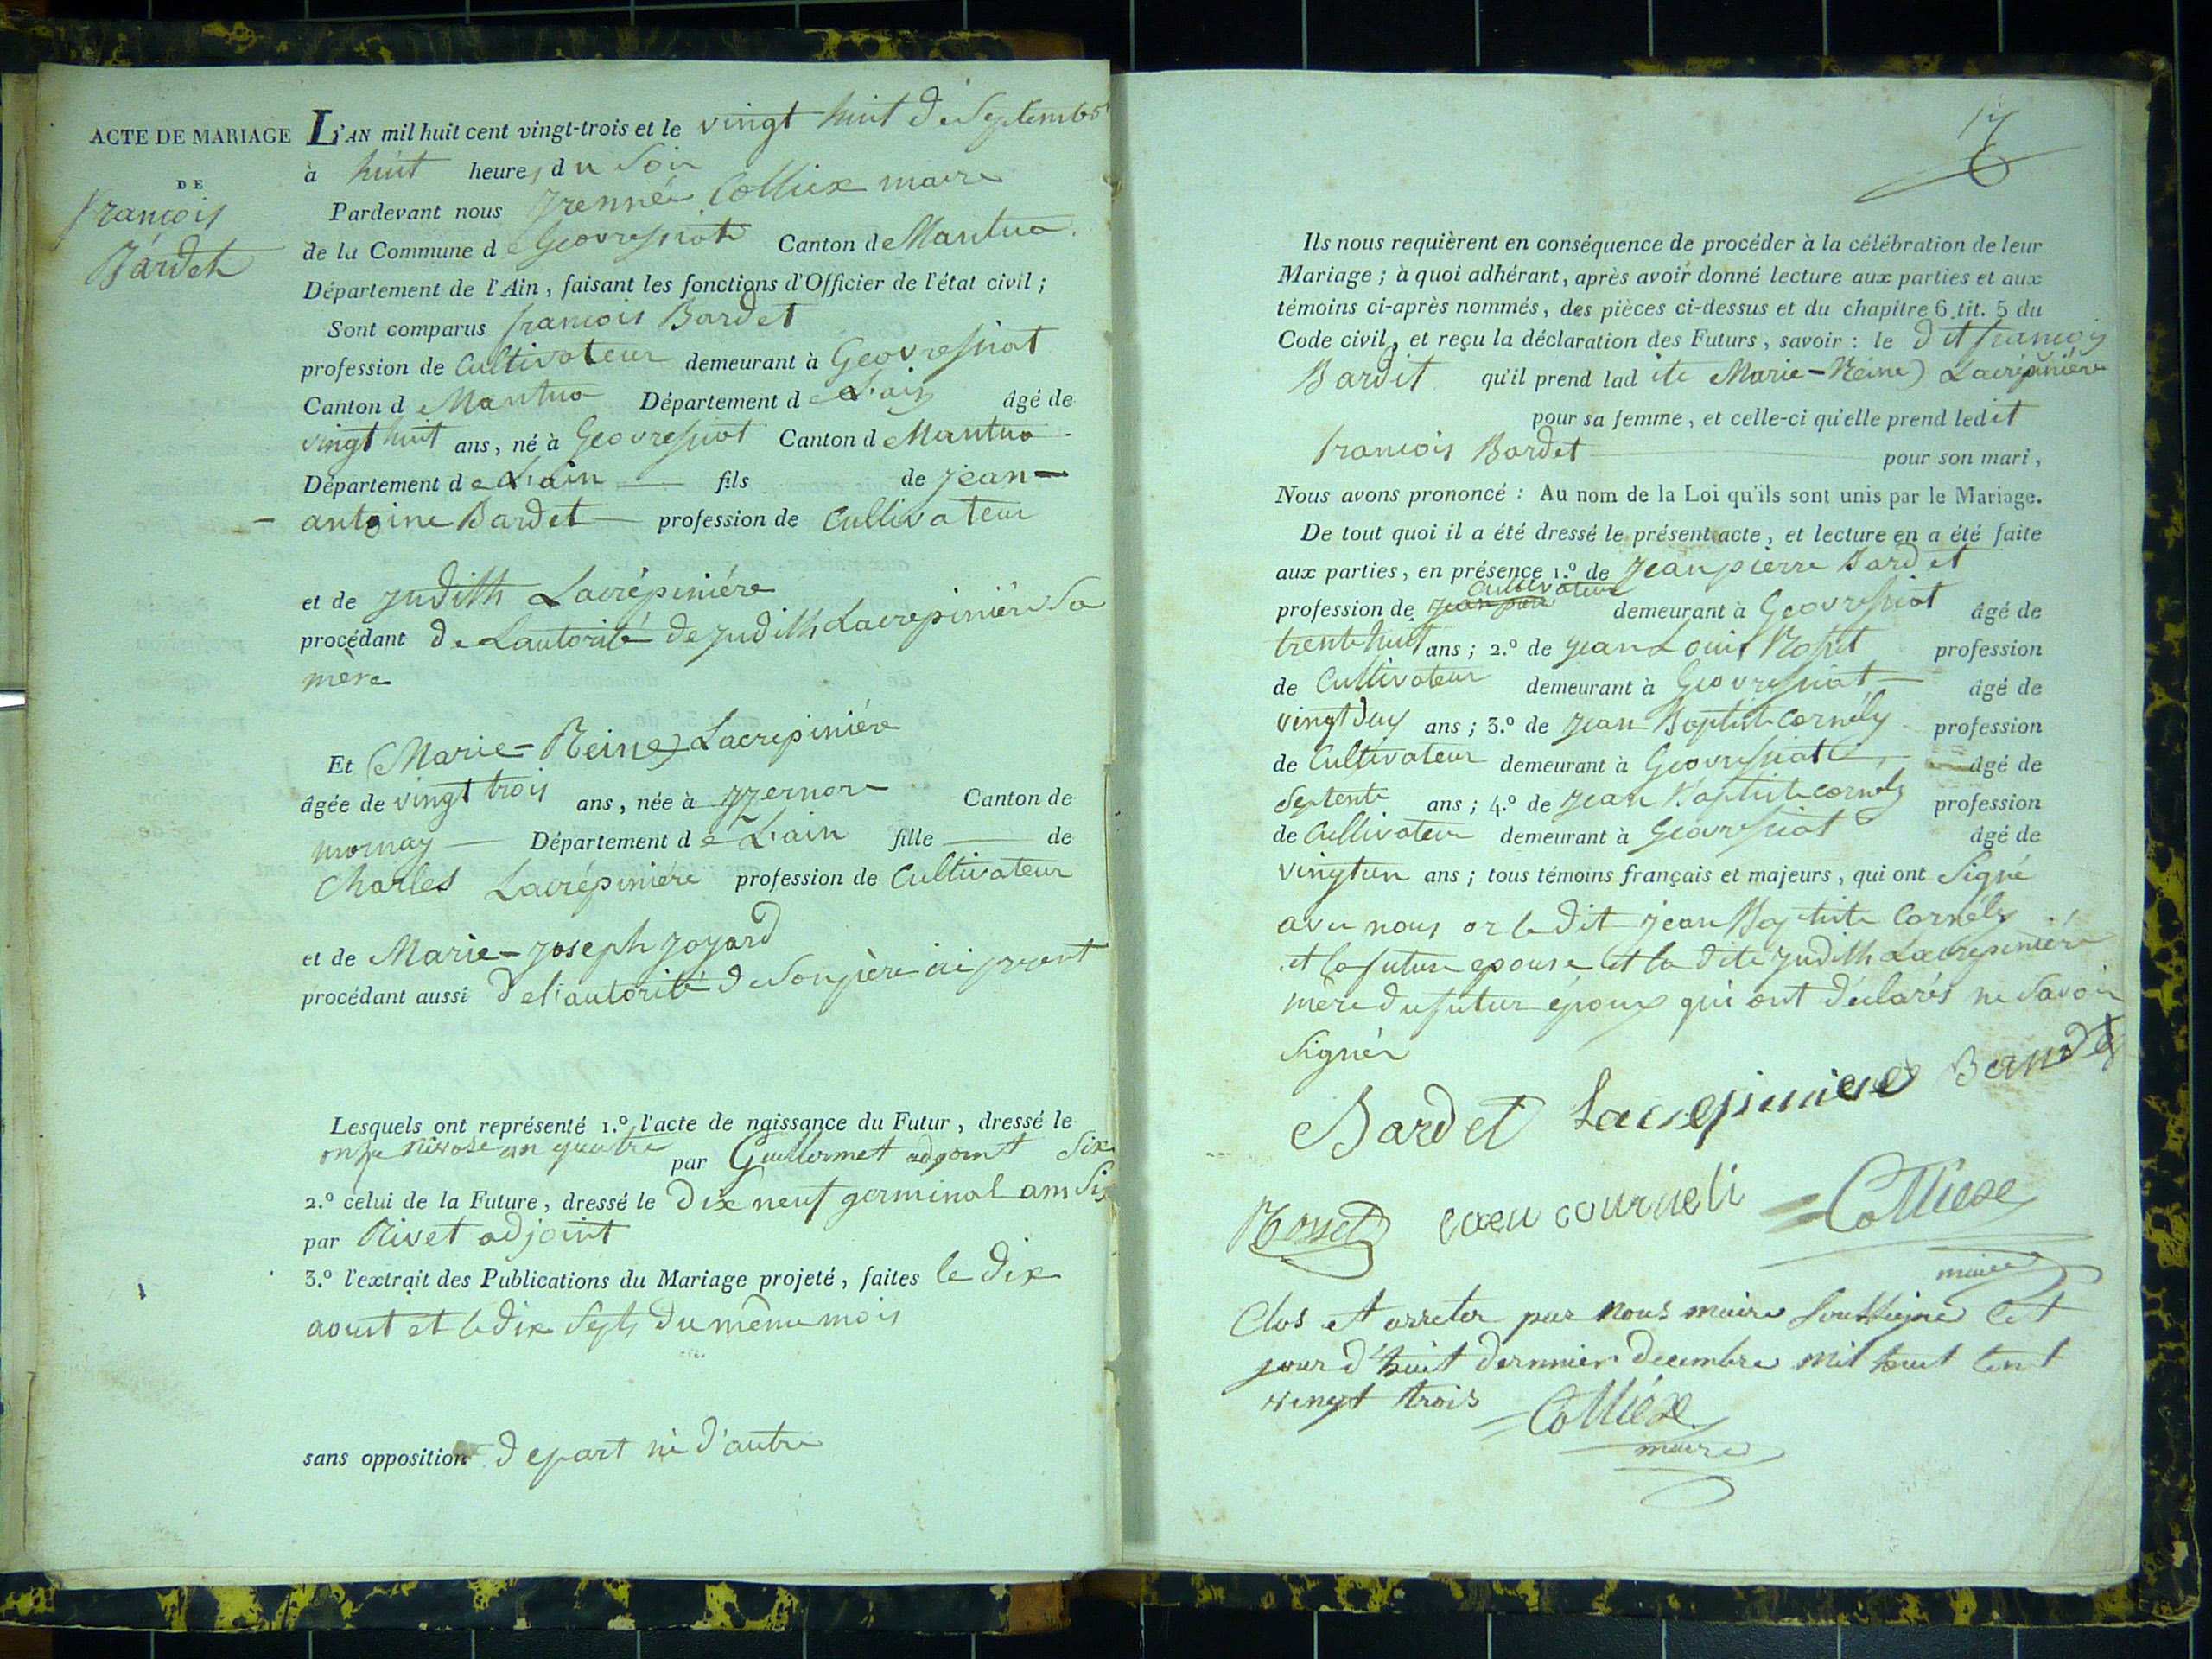 ACTE DE MARIAGE
DE
françois
Bardet
L'AN mil huit cent vingt-trois et le vingt huit de Septembre
à huit heures du Soir
Pardevant nous jrennée Colliex maire
de la Commune de Geovressiat Canton de Mantua
Département de l'Ain, faisant les fonctions d'Officier de l'état civil ;
Sont comparus françois Bardet
profession de Cultivateur demeurant à Geovressiat
Canton de Mantua Département de L'ain âgé de
vingt huit ans, né à Geovressiat Canton de Mantua
Département de L'ain fils de jean
antoine Bardet profession de Cultivateur
et de judith Lacrépiniére
procédant de Lautorité de judith Lacrepiniére Sa
mère
Et Marie-Reine Lacrepiniére
âgée de vingt trois ans, née à yzernore Canton de
mornay Département de L'ain fille de
Charles Lacrépiniére profession de Cultivateur
et de Marie-joseph joyard
procédant aussi de l'autorité de Son père ici present
Lesquels ont représenté 1.º l'acte de naissance du Futur, dressé le
onze nivose an quatre par Guillermet adjoint Six
2.º celui de la Future, dressé le dix neuf germinal an Six
par Rivet adjoint
3.º l'extrait des Publications du Mariage projeté, faites le dix
aoust et le dix Sept du même mois
sans opposition depart ni d'autre
17
Ils nous requièrent en conséquence de procéder à la célébration de leur
Mariage ; à quoi adhérant, après avoir donné lecture aux parties et aux
témoins ci-après nommés, des pièces ci-dessus et du chapitre 6 tit. 5 du
Code civil, et reçu la déclaration des Futurs, savoir : le dit françois
Bardet qu'il prend ladite Marie-Reine Lacrépiniére
pour sa femme, et celle-ci qu'elle prend ledit
françois Bardet pour son mari,
Nous avons prononcé : Au nom de la Loi qu'ils sont unis par le Mariage.
De tout quoi il a été dressé le présent acte, et lecture en a été faite
aux parties, en présence 1.º de jean pierre Bardet
profession de jean pierre Cultivateur demeurant à Geovressiat âgé de
trente huit ans ; 2.º de jean Louis Rosset profession
de Cultivateur demeurant à Geovressiat âgé de
vingt deux ans ; 3.º de jean Baptiste Cornély profession
de Cultivateur demeurant à Geovressiat âgé de
Septente ans ; 4.º de jean Baptiste Cornély profession
de Cultivateur demeurant à Geovressiat âgé de
vingtun ans ; tous témoins français et majeurs, qui ont Signé
avec nous or le dit jean Baptiste Cornély
et la future epouse et la dite judith Lacrepiniére
mère du futur époux qui ont déclarés ne Savoir
Signér
Bardet Lacrepiniere
Rosset courneli Colliexe
maire
Clos et arreter par nous maire Soussigné cet
jour d'huit dernnier decembre mil huit cent
vingt trois Colliexe
maire